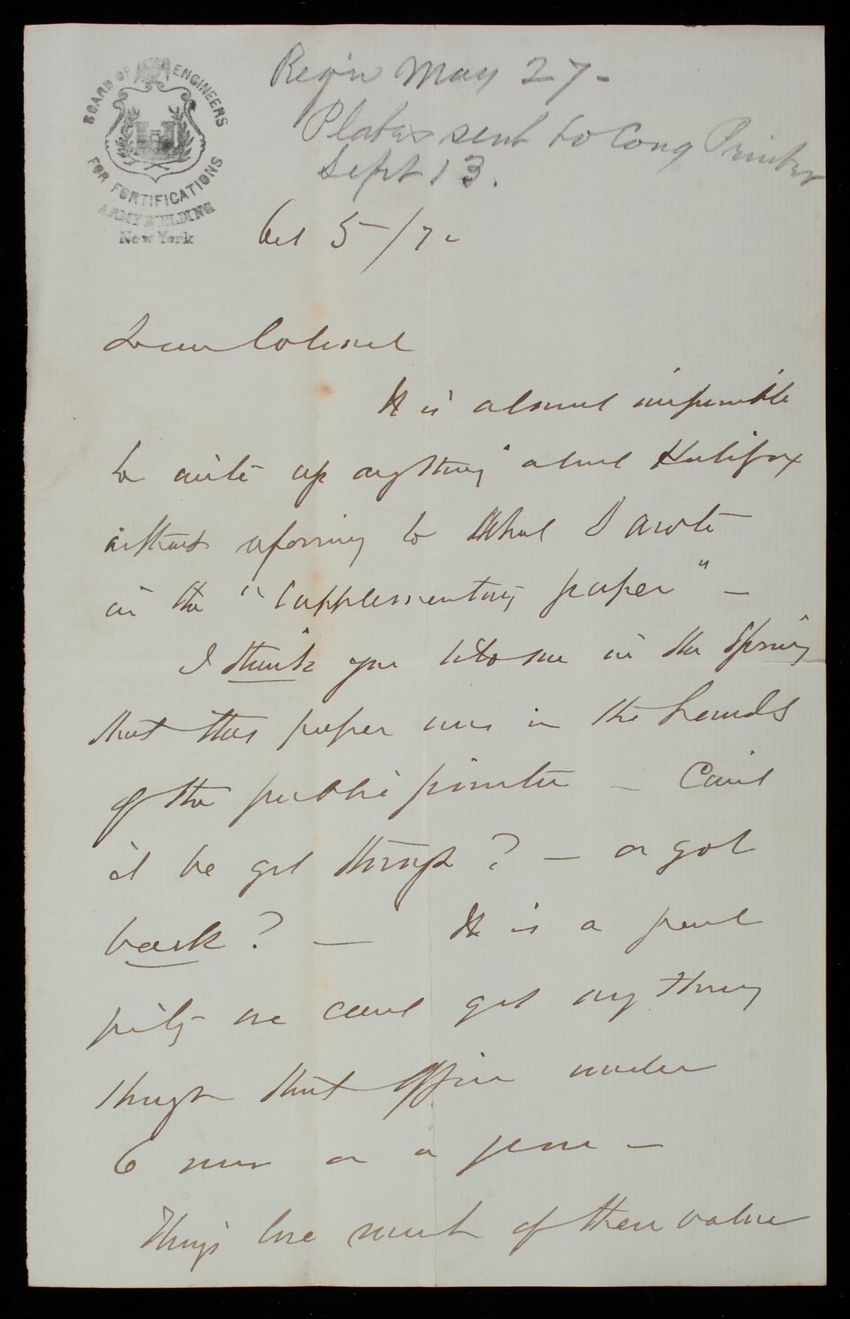 BOARD OF ENGINEERS
FOR FORTIFICATIONS
ARMY BUILDING
New York
May 27-
Plates sent to Cong Printer
Sept 13.
Oct 5/7
Dear Colonel
It is almost impossible
to write up anything about Halifax
without referring to what I wrote
in the "Supplementary paper" —
I think you in the Spring
that this paper was in the hands
of the public printer — Can't
it be got through? — or got
back? — It is a great
pity we can't get anything
through that Office under
6 mos or a year —
Things lose much of their value